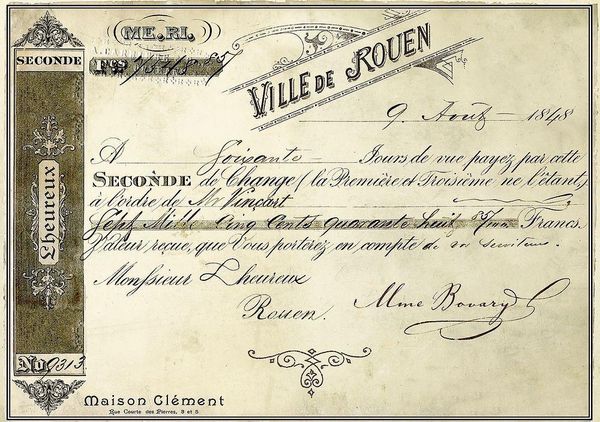 SECONDE
ME.RI.
Fs 7548 57
VILLE DE ROUEN
9 Août 1848
A Soixante Jours de vue payez par cette
SECONDE de Change (la Première et Troisième ne l'étant)
à l'ordre de Mr Vinçart
Sept Mille Cinq Cents quarante huit 57/100 Francs
Valeur reçue, que Vous porterez en compte de
Monsieur Lheureux
Rouen.
Mme Bovary
Lheureux
No 9313
Maison Clément
Rue Courte des Pierres, 3 et 5